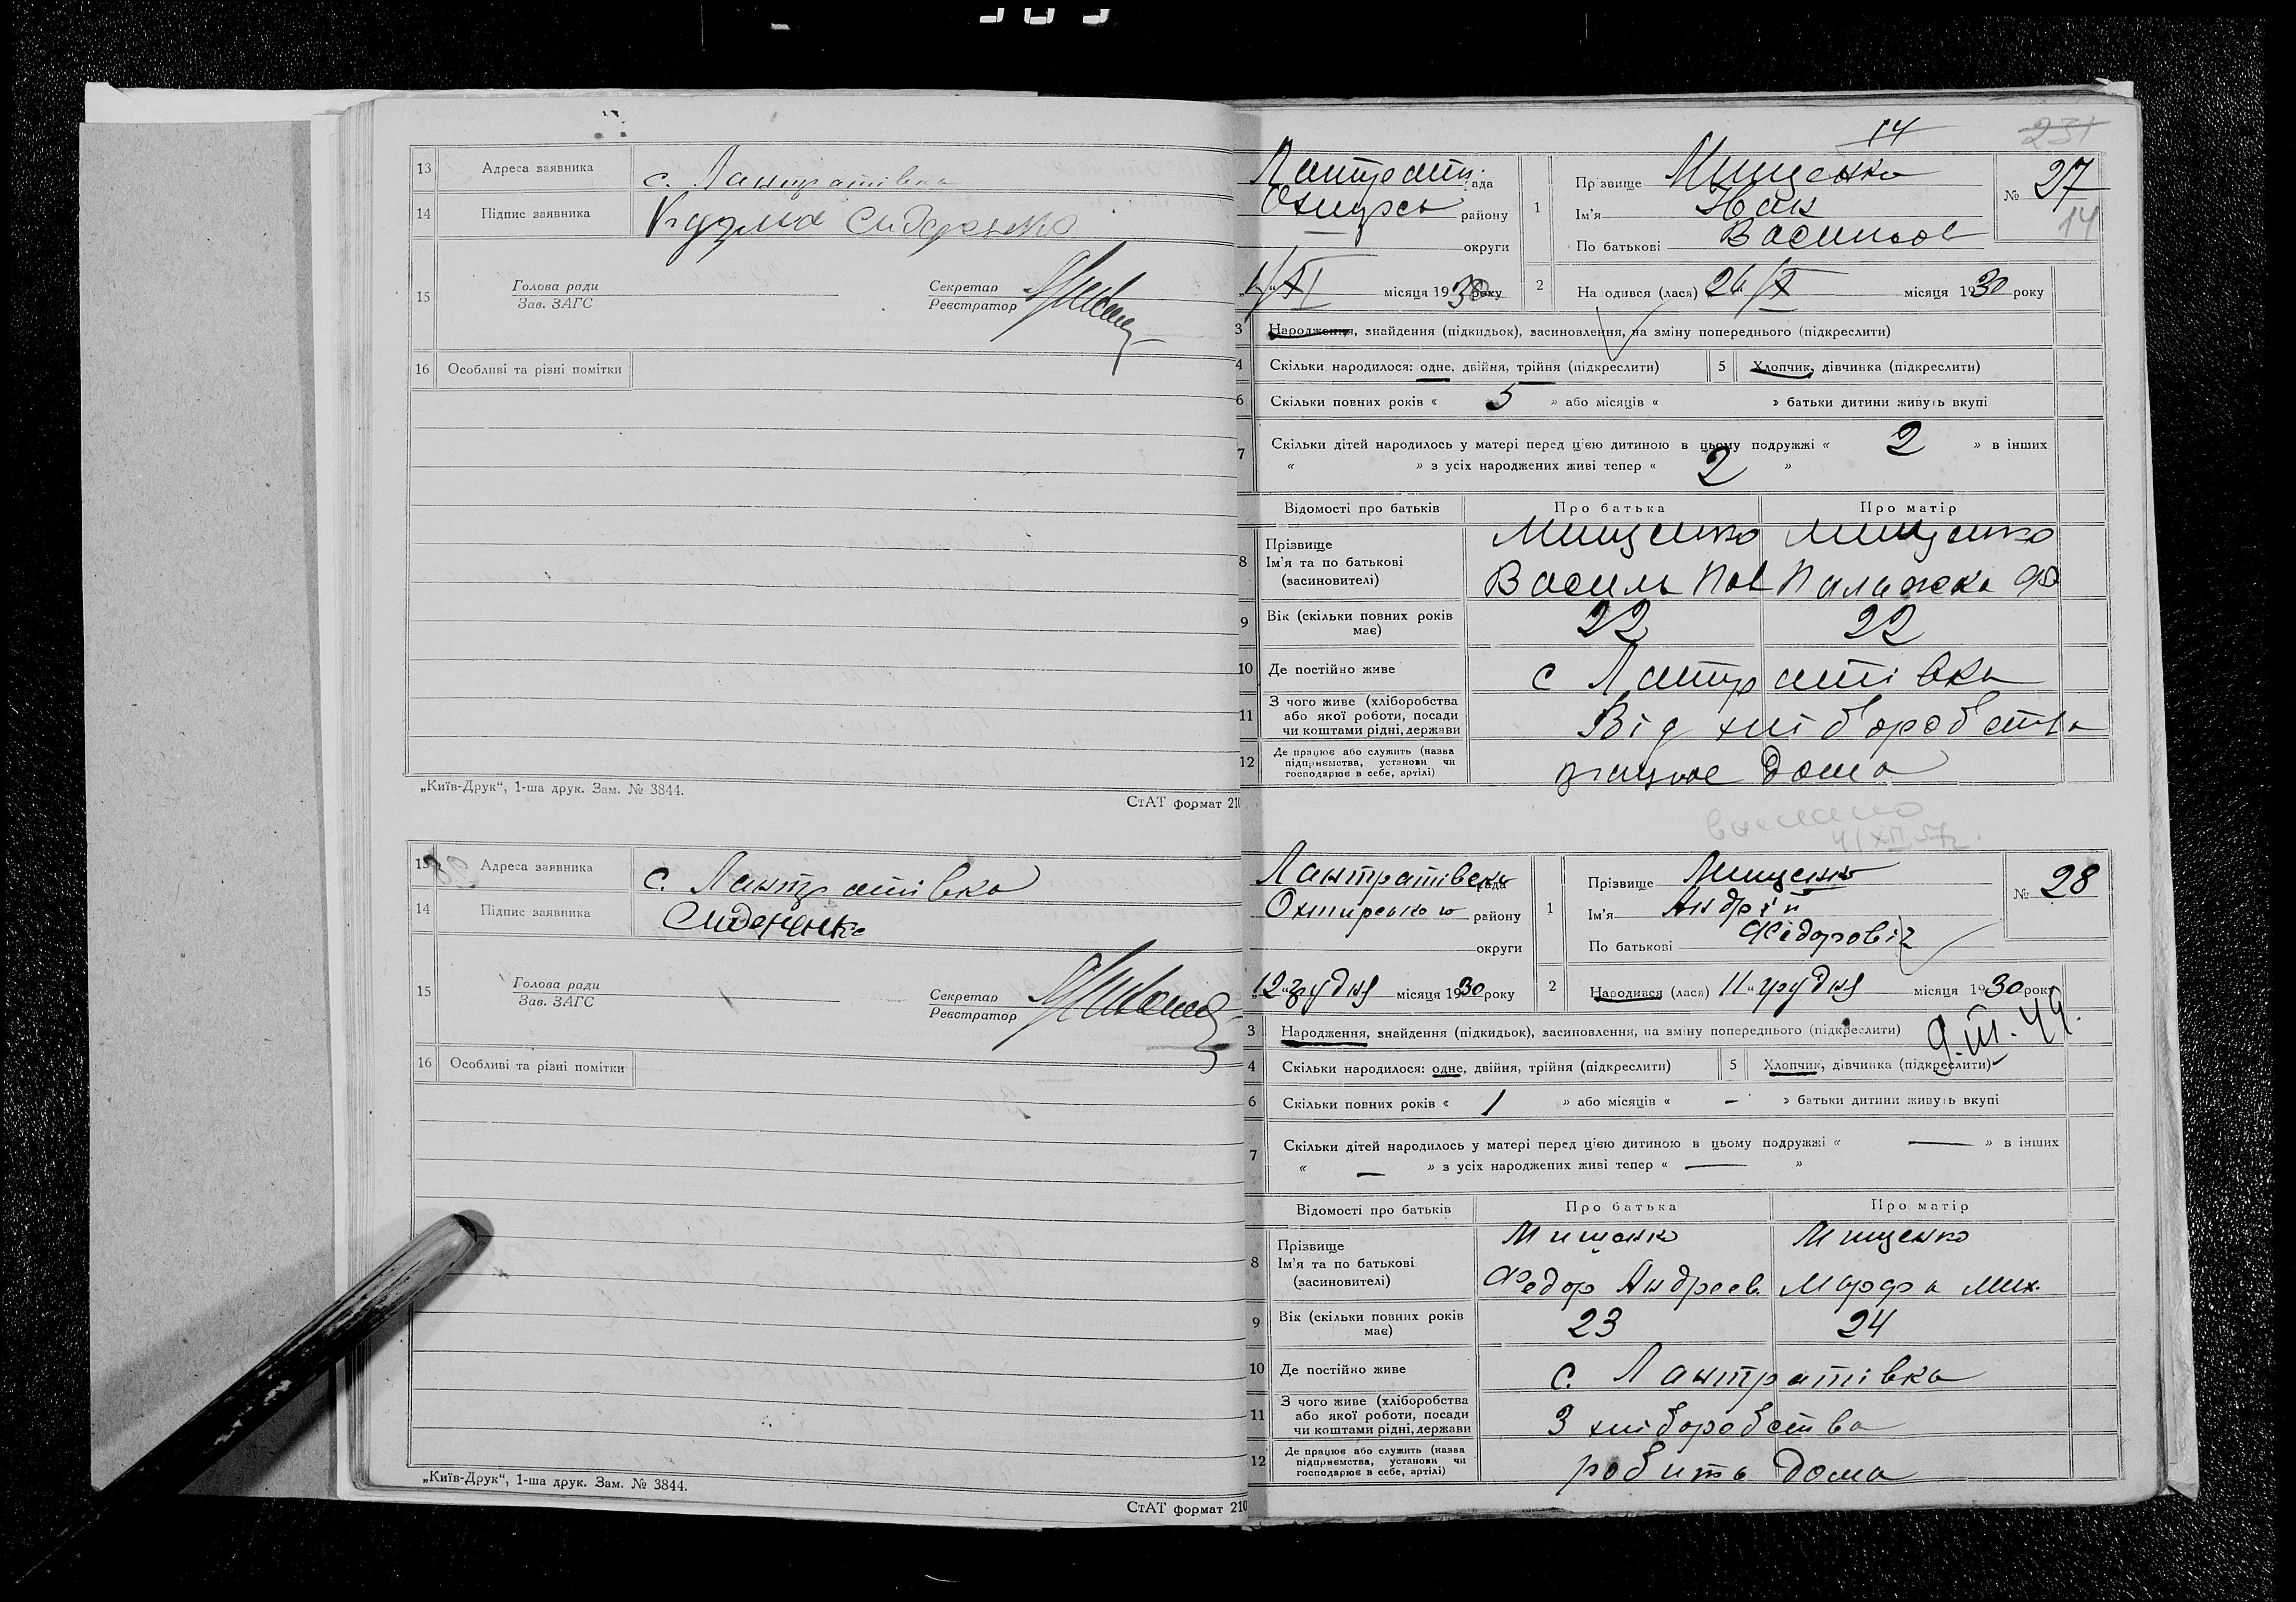 13 Адреса заявника с. Лантратівка
14 Підпис заявника Кузма Сидоренко
15 Голова ради
Зав. ЗАГС
Секретар
Реєстратор
16 Особливі та різні помітки
„Київ-Друк“, 1-ша друк. Зам. № 3844.
СтАТ формат 210
13 Адреса заявника с. Лантратівка
14 Підпис заявника
15 Голова ради
Зав. ЗАГС
Секретар
Реєстратор
16 Особливі та різні помітки
„Київ-Друк“, 1-ша друк. Зам. № 3844.
СтАТ формат 210
14
231
Лантратів. рада
Охтирсь району
округи
XI місяця 1930 року
1 Прізвище Мищенко
Ім'я Іван
По батькові Васильов
№ 27
14
2 Народився (лася) 26/X місяця 1930 року
3 Народження, знайдення (підкидьок), засиновлення, на зміну попереднього (підкреслити)
4 Скільки народилося: одне, двійня, трійня (підкреслити) 5 Хлопчик, дівчинка (підкреслити)
6 Скільки повних років « 5 » або місяців « » батьки дитини живуть вкупі
7 Скільки дітей народилось у матері перед цією дитиною в цьому подружжі « 2 » в інших
« » з усіх народжених живі тепер « 2 »
Відомості про батьків Про батька Про матір
8 Прізвище Мищенко Мищенко
Ім'я та по батькові
(засиновителі) Василь Пав Палажка Ф
9 Вік (скільки повних років має) 22 22
10 Де постійно живе с Лантратівка
11 З чого живе (хліборобства
або якої роботи, посади
чи коштами рідні, держави Від хліборобства
12 Де працює або служить (назва
підприємства, установи чи
господарює в себе, артілі) працює дома
4/XII 57р.
Лантратівськ рада
Охтирського району
округи
„12“ грудня місяця 1930 року
1 Прізвище Мищенко
Ім'я Андрій
По батькові Федоровіч
№ 28
2 Народився (лася) 11 „грудня місяця 1930 року
9.III.49.
3 Народження, знайдення (підкидьок), засиновлення, на зміну попереднього (підкреслити)
4 Скільки народилося: одне, двійня, трійня (підкреслити) 5 Хлопчик, дівчинка (підкреслити)
6 Скільки повних років « 1 » або місяців « - » батьки дитини живуть вкупі
7 Скільки дітей народилось у матері перед цією дитиною в цьому подружжі « — » в інших
« — » з усіх народжених живі тепер « — »
Відомості про батьків Про батька Про матір
8 Прізвище Мищенко Мищенко
Ім'я та по батькові
(засиновителі) Федор Андреев. Марфа Мих.
9 Вік (скільки повних років має) 23 24
10 Де постійно живе с. Лантратівка
11 З чого живе (хліборобства
або якої роботи, посади
чи коштами рідні, держави З хліборобства
12 Де працює або служить (назва
підприємства, установи чи
господарює в себе, артілі) робить дома